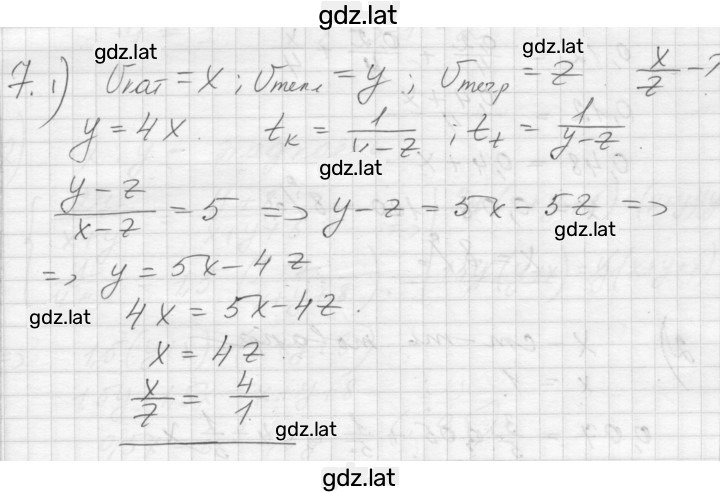 gdz.lat
gdz.lat
gdz.lat
7. 1) υкат = x; υтепл = y; υтечр = z x/z - ?
y = 4x. tк = 1/(x-z); tt = 1/(y-z)
gdz.lat
(y-z)/(x-z) = 5 => y-z = 5x = 5z =>
gdz.lat
=> y = 5x - 4z
gdz.lat
4x = 5x - 4z.
x = 4z.
x/z = 4/1.
gdz.lat
gdz.lat